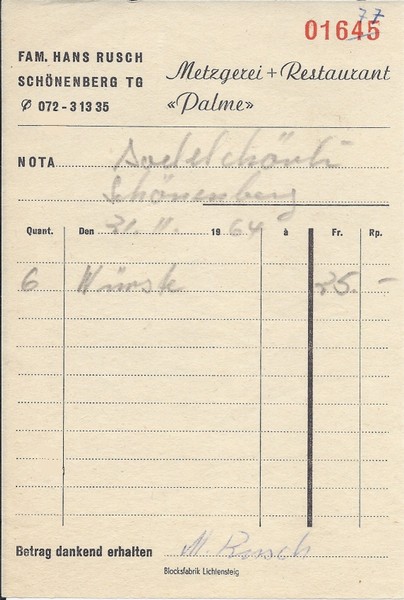 77
01645
FAM. HANS RUSCH
SCHÖNENBERG TG
✆ 072 - 3 13 35
Metzgerei + Restaurant
«Palme»
NOTA
Schönenberg
Quant. Den 21. II. 1964 à Fr. Rp.
6 Würste 25.–
Betrag dankend erhalten M. Rusch
Blocksfabrik Lichtensteig